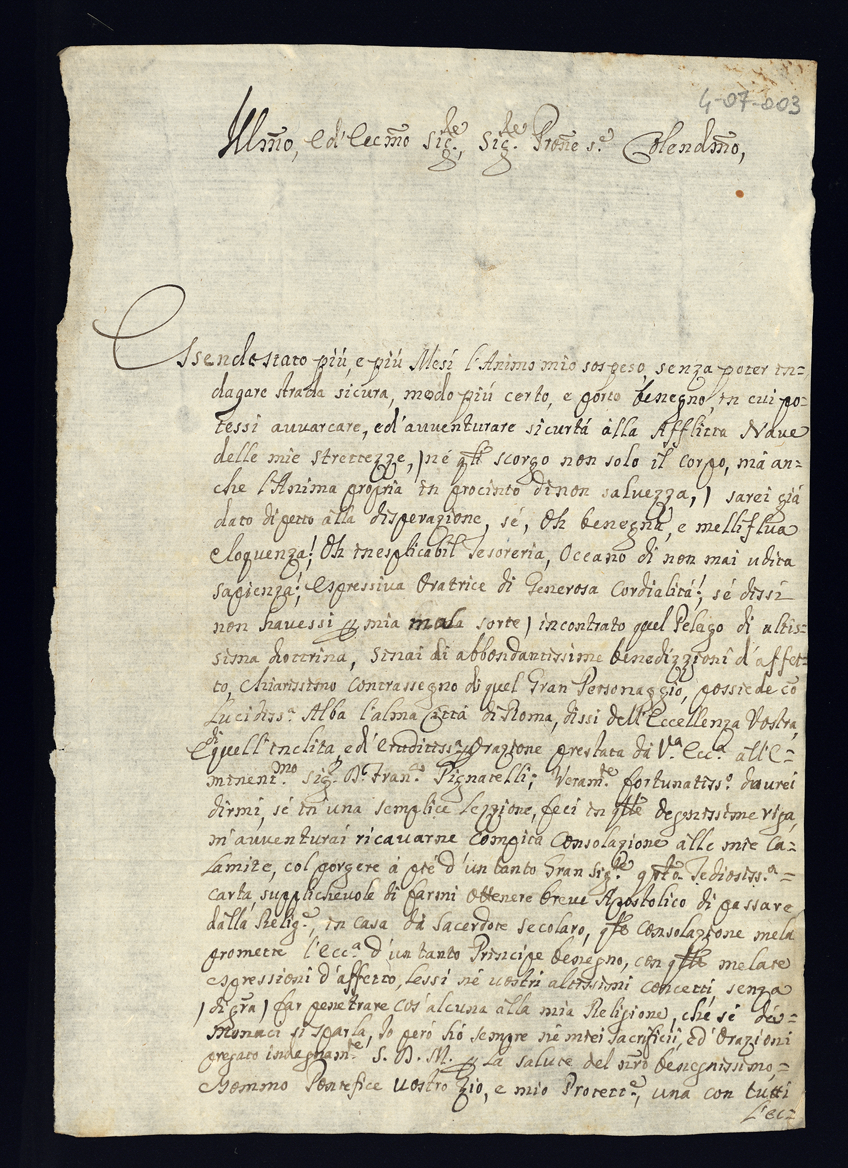 4-07-003
Illmo, ed' Eccmo Sig.re, Sig.re Prone s.e Colendmo,
Essendo stato più, e più Mesi l'Animo mio sospeso senza poter in=
dagare strada sicura, modo più certo, e porto benegno, in cui po=
tessi auuarcare, ed'auuenturare sicurtá alla Afflitta Naue
delle mie strettezze, ) né qsti scorgo non solo il corpo, mà an=
che l'Anima propria in procinto di non saluezza, ) sarei giá
dato di petto alla disperazione, sé, Oh benegna, e melliflua
eloquenza! Oh inesplicabil Tesoreria, Oceano di non mai udita
sapienza! espressiua Oratrice di Generosa Cordialitá!, sé dissi
non hauessi p mia mala sorte ) incontrato quel Pelago di altis=
sima dottrina, Sinai di abbondantissime benedizzioni d'affet=
to, Chiarissimo contrassegno di quel Gran Personaggio, possiede co
Lucidiss.a Alba l'alma Cittá di Roma, dissi dell'Eccellenza Vostra,
di quell'inclita, ed'Eruditiss.a Orazione prestata dà V.a Ecc.a all'E=
minent.mo Sig.r D. Fran.co Pignatelli; Veram.te fortunatiss.o dourei
dirmi, sé in'una semplice Lezzione, feci in qste degnissime riga,
m'auuenturai ricauarne compita Consolazione alle mie Ca=
lamite, col porgere à pié d'un tanto Gran Sig.re qsta Tediosiss.a=
Carta, supplicheuole di farmi Ottenere breue Apostolico di passare
dalla Relig.e, in casa dà Sacerdote Secolaro, qsta Consolazione mela
promette l'Ecc.a d'un tanto Principe benegno, con qste melate
espressioni d'affetto, Lessi né uostri altissimi concetti senza
) di gra ) far penetrare cos'alcuna alla mia Religione, ché sé dé=
Monaci si sparla, Io peró hó sempre né miei Sacrificii, ed'Orazioni
pregato indegnam.te S. D. M. p La salute del nro benegnissimo=
Sommo Pontefice uostro Zio, e mio Protett.e, una con tutti
l'ec=